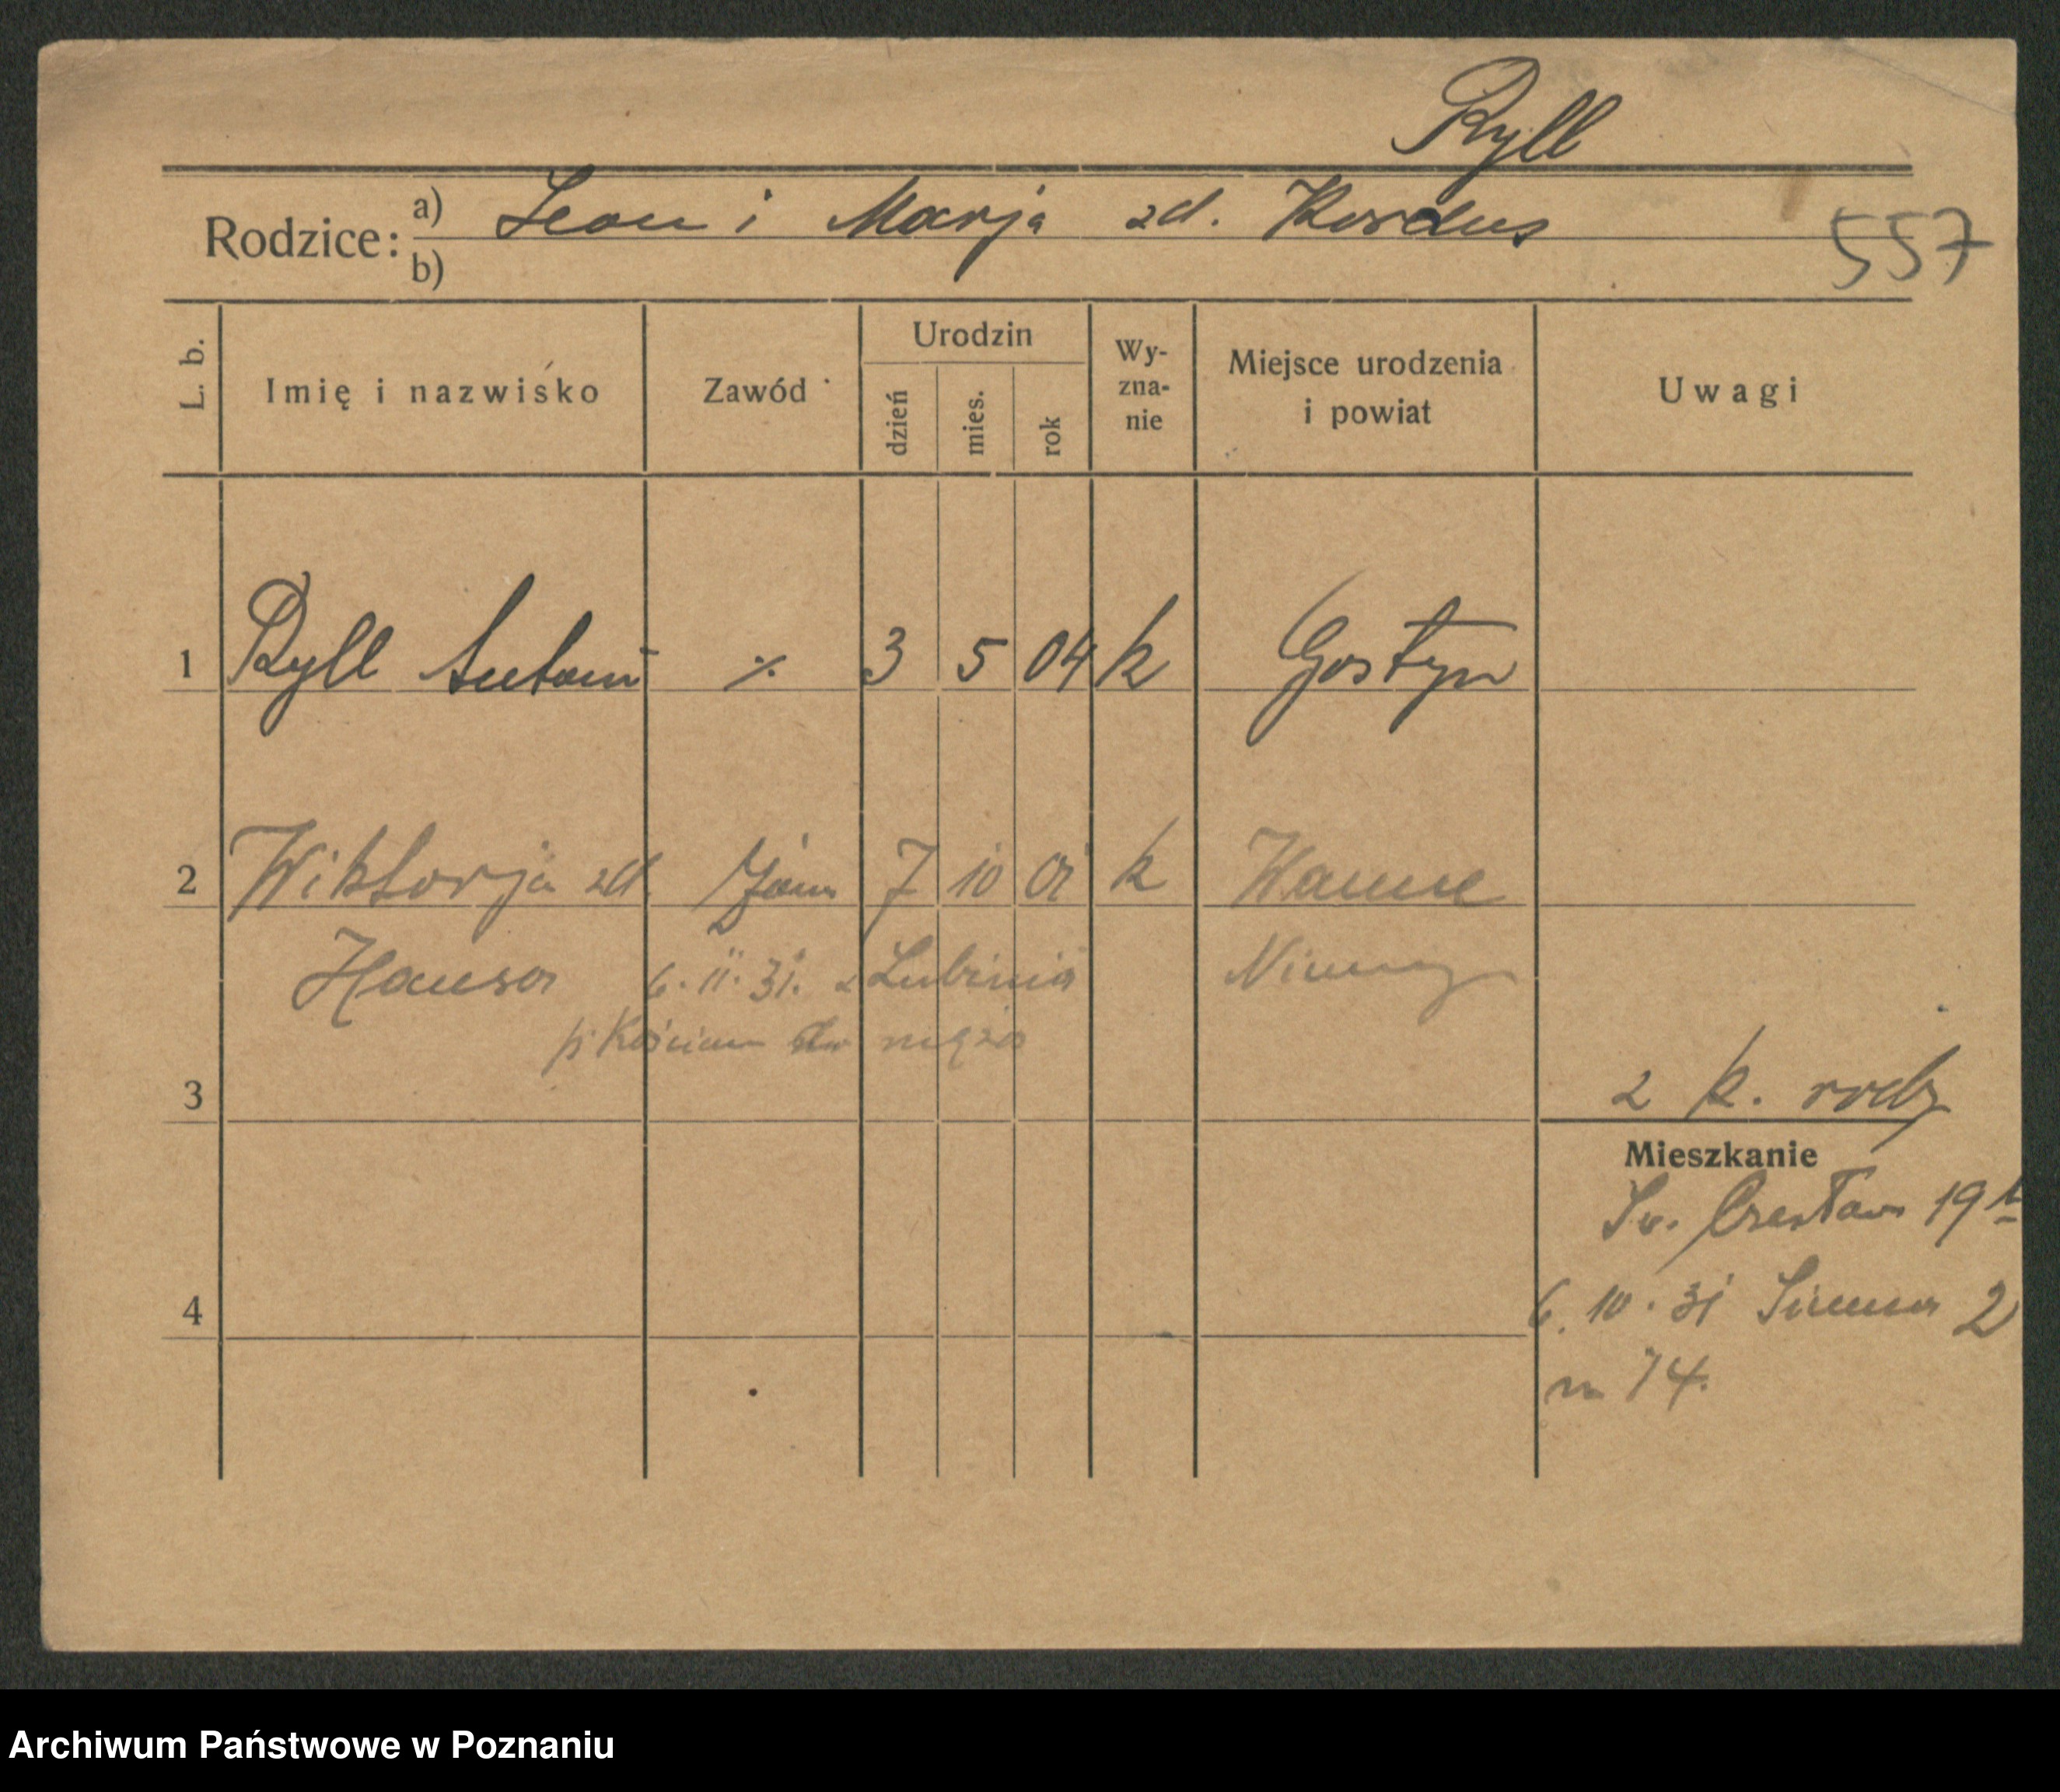 Ryll
Rodzice: a) Leon i Marja zd. Kordus
557
b)
L. b.
Imię i nazwisko
Zawód
Urodzin
dzień
mies.
rok
Wy-
zna-
nie
Miejsce urodzenia
i powiat
Uwagi
1 Ryll Antoni ·/. 3 5 04 k Gostyn
2 Wiktorja zd. żona 7 10 01 k Wanne
Hansa 6.11.31. z Lubinia Niemcy
p. Kościan do męża
3
2 k. rodz
Mieszkanie
Św. Czesława 19
4
6.10.31 Zimna 2
m 74.
Archiwum Państwowe w Poznaniu